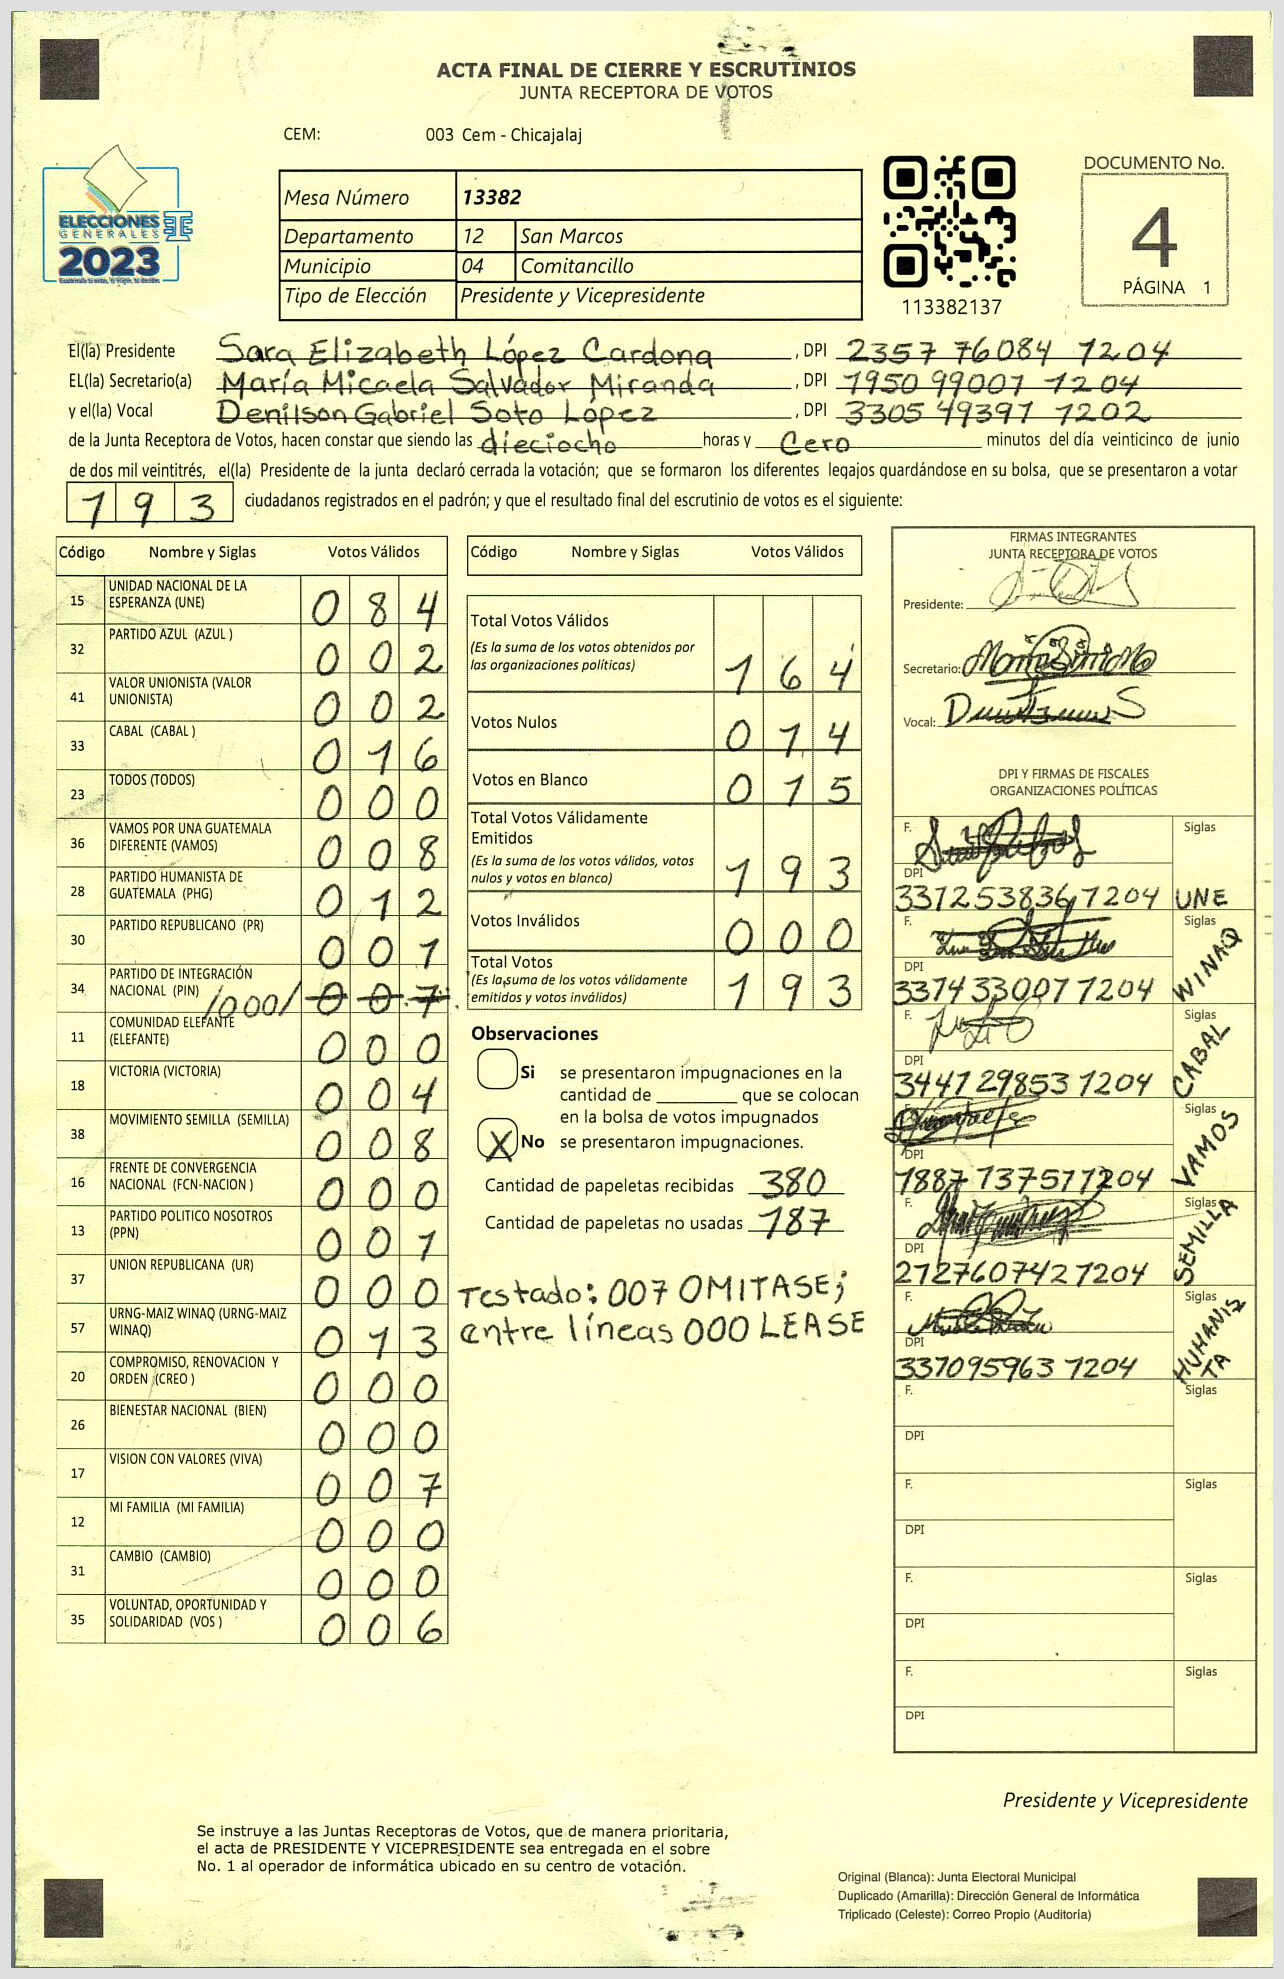 ACTA FINAL DE CIERRE Y ESCRUTINIOS
JUNTA RECEPTORA DE VOTOS
CEM: 003 Cem - Chicajalaj
ELECCIONES
GENERALES
2023
Mesa Número 13382
Departamento 12 San Marcos
Municipio 04 Comitancillo
Tipo de Elección Presidente y Vicepresidente
113382137
DOCUMENTO No.
4
PÁGINA 1
El(la) Presidente Sara Elizabeth López Cardona, DPI 2357 76084 1204
EL(la) Secretario(a) María Micaela Salvador Miranda, DPI 1950 99001 1204
y el(la) Vocal Denilson Gabriel Soto López, DPI 3305 49397 1202
de la Junta Receptora de Votos, hacen constar que siendo las dieciocho horas y Cero minutos del día veinticinco de junio
de dos mil veintitrés, el(la) Presidente de la junta declaró cerrada la votación; que se formaron los diferentes legajos quardándose en su bolsa, que se presentaron a votar
193 ciudadanos registrados en el padrón; y que el resultado final del escrutinio de votos es el siguiente:
Código Nombre y Siglas Votos Válidos
15 UNIDAD NACIONAL DE LA ESPERANZA (UNE) 084
32 PARTIDO AZUL (AZUL ) 002
41 VALOR UNIONISTA (VALOR UNIONISTA) 002
33 CABAL (CABAL ) 016
23 TODOS (TODOS) 000
36 VAMOS POR UNA GUATEMALA DIFERENTE (VAMOS) 008
28 PARTIDO HUMANISTA DE GUATEMALA (PHG) 012
30 PARTIDO REPUBLICANO (PR) 001
34 PARTIDO DE INTEGRACIÓN NACIONAL (PIN) /000/ 007
11 COMUNIDAD ELEFANTE (ELEFANTE) 000
18 VICTORIA (VICTORIA) 004
38 MOVIMIENTO SEMILLA (SEMILLA) 008
16 FRENTE DE CONVERGENCIA NACIONAL (FCN-NACION ) 000
13 PARTIDO POLITICO NOSOTROS (PPN) 001
37 UNION REPUBLICANA (UR) 000
57 URNG-MAIZ WINAQ (URNG-MAIZ WINAQ) 013
20 COMPROMISO, RENOVACION Y ORDEN (CREO ) 000
26 BIENESTAR NACIONAL (BIEN) 000
17 VISION CON VALORES (VIVA) 007
12 MI FAMILIA (MI FAMILIA) 000
31 CAMBIO (CAMBIO) 000
35 VOLUNTAD, OPORTUNIDAD Y SOLIDARIDAD (VOS ) 006
Código Nombre y Siglas Votos Válidos
Total Votos Válidos 164
(Es la suma de los votos obtenidos por
las organizaciones políticas)
Votos Nulos 014
Votos en Blanco 015
Total Votos Válidamente
Emitidos 193
(Es la suma de los votos válidos, votos
nulos y votos en blanco)
Votos Inválidos 000
Total Votos 193
(Es la suma de los votos válidamente
emitidos y votos inválidos)
Observaciones
Si se presentaron impugnaciones en la
cantidad de ________ que se colocan
en la bolsa de votos impugnados
X No se presentaron impugnaciones.
Cantidad de papeletas recibidas 380
Cantidad de papeletas no usadas 187
Testado: 007 OMITASE;
entre líneas 000 LEASE
FIRMAS INTEGRANTES
JUNTA RECEPTORA DE VOTOS
Presidente:
Secretario:
Vocal:
DPI Y FIRMAS DE FISCALES
ORGANIZACIONES POLÍTICAS
F. Siglas
DPI
337253836 1204 UNE
F. Siglas
DPI
3374 33007 1204 WINAQ
F. Siglas
DPI
3441 29853 1204 CABAL
F. Siglas
DPI
1887 13757 1204 VAMOS
F. Siglas
DPI
2127607421204 SEMILLA
F. Siglas
DPI
337095963 1204 HUMANISTA
F. Siglas
DPI
F. Siglas
DPI
F. Siglas
DPI
F. Siglas
DPI
Presidente y Vicepresidente
Se instruye a las Juntas Receptoras de Votos, que de manera prioritaria,
el acta de PRESIDENTE Y VICEPRESIDENTE sea entregada en el sobre
No. 1 al operador de informática ubicado en su centro de votación.
Original (Blanca): Junta Electoral Municipal
Duplicado (Amarilla): Dirección General de Informática
Triplicado (Celeste): Correo Propio (Auditoría)